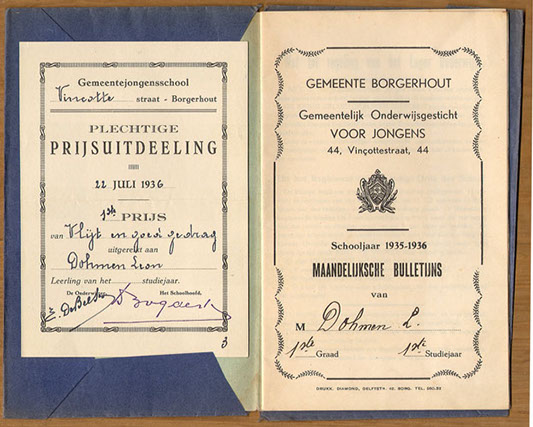 Gemeentejongensschool
Vincotte straat - Borgerhout
PLECHTIGE
PRIJSUITDEELING
22 JULI 1936
1ste PRIJS
van Vlijt en goed gedrag
uitgereikt aan
Dohmen Leon
Leerling van het studiejaar.
De Onderwijzer, Het Schoolhoofd,
3
GEMEENTE BORGERHOUT
Gemeentelijk Onderwijsgesticht
VOOR JONGENS
44, Vinçottestraat, 44
Schooljaar 1935-1936
MAANDELIJKSCHE BULLETIJNS
van
M Dohmen L.
1ste Graad 1ste Studiejaar
DRUKK. DIAMOND, 42, BORG. TEL.